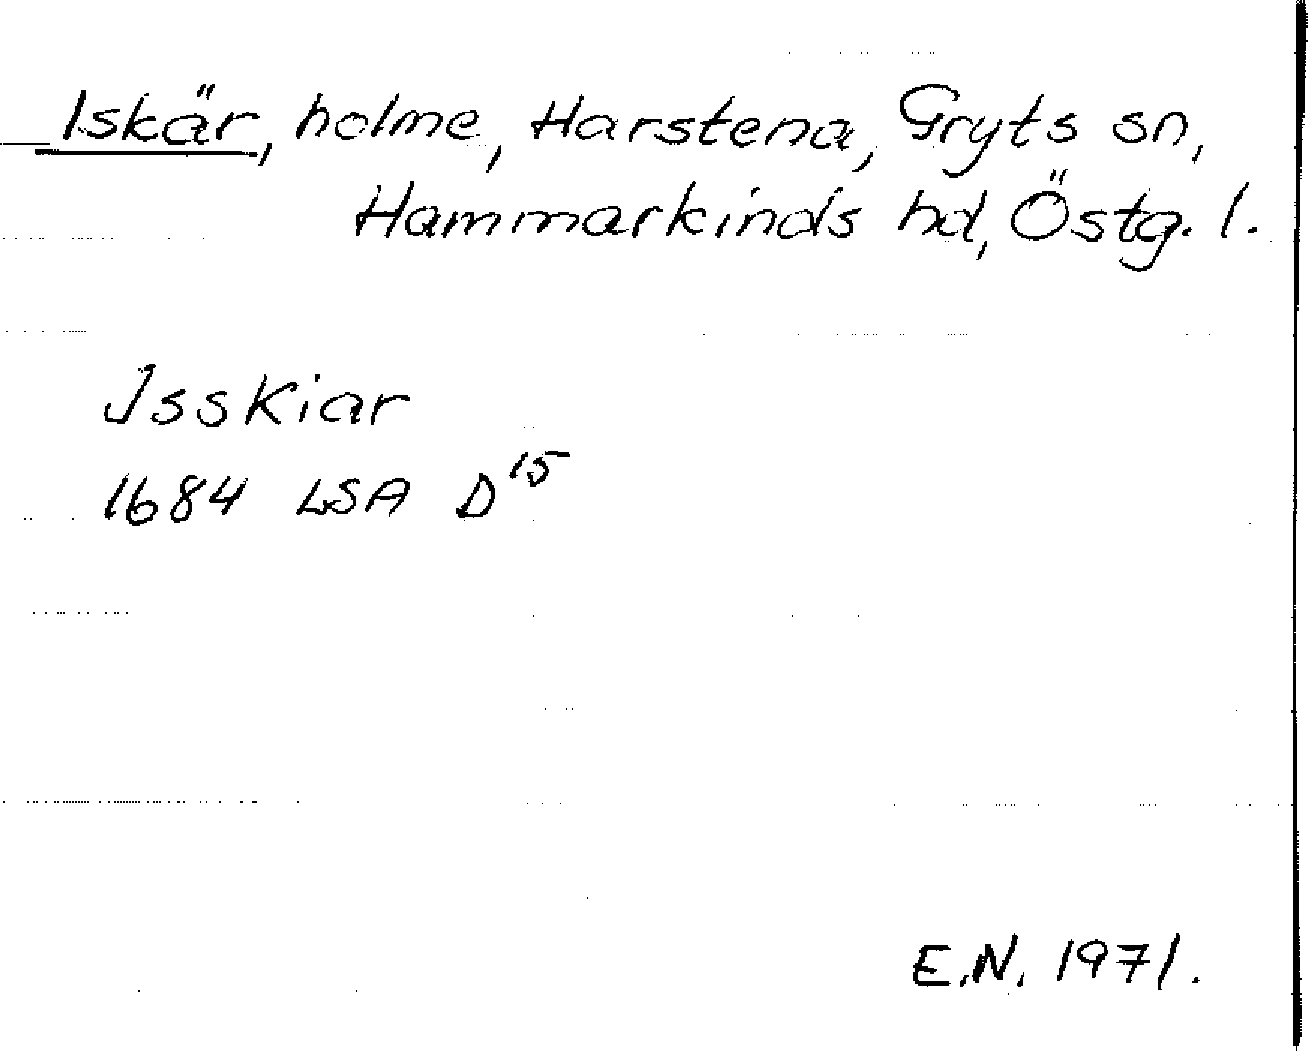 Iskär, holme, Harstena, Gryts sn,
Hammarkinds hd, Östg. l.
Isskiar
1684 LSA D15
E.N. 1971.